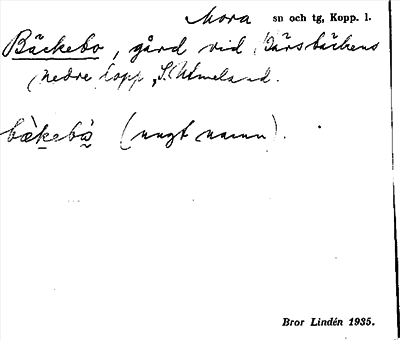 Mora sn och tg, Kopp. l.
Bäckebo, gård vid Bärsbäckens
nedre lopp, S. Utmeland.
bæ̀kebå̀ (nugt namn).
Bror Lindén 1935.